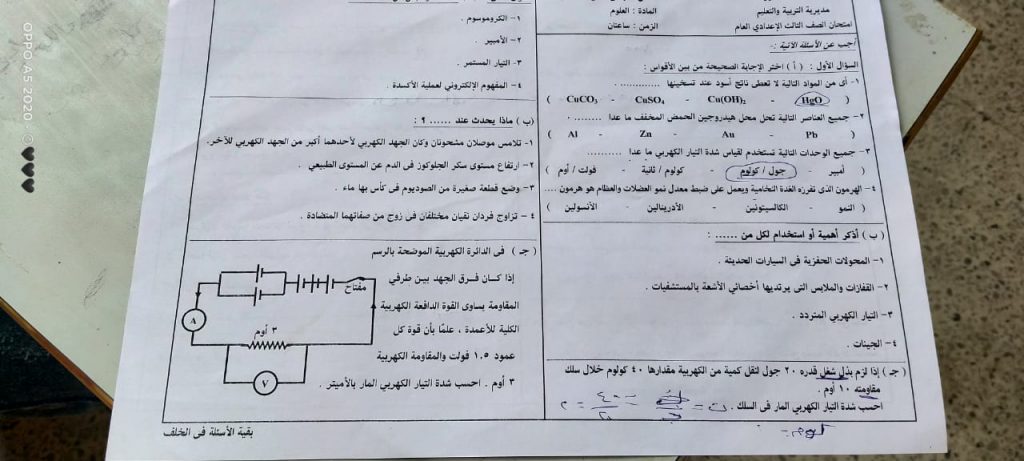 مديرية التربية والتعليم
امتحان الصف الثالث الإعدادي العام
المادة : العلوم
الزمن : ساعتان
أجب عن الأسئلة الآتية :-
السؤال الأول : ( أ ) اختر الإجابة الصحيحة من بين الأقواس :
١- أى من المواد التالية لا تعطى ناتج أسود عند تسخينها ............
( HgO - Cu(OH)₂ - CuSO₄ - CuCO₃ )
٢- جميع العناصر التالية تحل محل هيدروجين الحمض المخفف ما عدا .........
( Pb - Au - Zn - Al )
٣- جميع الوحدات التالية تستخدم لقياس شدة التيار الكهربي ما عدا ..........
( أمبير - جول / كولوم - كولوم / ثانية - فولت / أوم )
٤- الهرمون الذى تفرزه الغدة النخامية ويعمل على ضبط معدل نمو العضلات والعظام هو هرمون ....
( النمو - الكالسيتونين - الأدرينالين - الأنسولين )
(ب) أذكر أهمية أو استخدام لكل من ...... :
١- المحولات الحفزية فى السيارات الحديثة .
٢- القفازات والملابس التى يرتديها أخصائي الأشعة بالمستشفيات .
٣- التيار الكهربي المتردد .
٤- الجينات .
( جـ ) إذا لزم بذل شغل قدره ٢٠ جول لنقل كمية من الكهربية مقدارها ٤٠ كولوم خلال سلك
مقاومته ١٠ أوم .
احسب شدة التيار الكهربي المار فى السلك .
١- الكروموسوم .
٢- الأمبير .
٣- التيار المستمر .
٤- المفهوم الإلكتروني لعملية الأكسدة .
(ب) ماذا يحدث عند ...... ؟ :
١- تلامس موصلان مشحونتان وكان الجهد الكهربي لأحدهما أكبر من الجهد الكهربي للآخر.
٢- ارتفاع مستوى سكر الجلوكوز فى الدم عن المستوى الطبيعي .
٣- وضع قطعة صغيرة من الصوديوم فى كأس بها ماء .
٤ - تزاوج فردان نقيان مختلفان فى زوج من صفاتهما المتضادة .
( جـ ) فى الدائرة الكهربية الموضحة بالرسم
إذا كان فرق الجهد بين طرفي
المقاومة يساوى القوة الدافعة الكهربية
الكلية للأعمدة ، علمًا بأن قوة كل
عمود ١.٥ فولت والمقاومة الكهربية
٣ أوم . احسب شدة التيار الكهربي المار بالأميتر .
مفتاح
A
٣ أوم
V
بقية الأسئلة فى الخلف
OPPO A5 2020